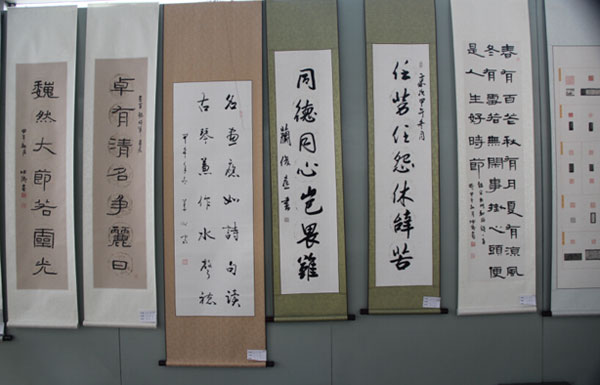 春有百花秋有月夏有涼風
冬有雪若無閑事掛心頭便
是人生好時節
任勞任怨休辭苦
同德同心豈畏難
名畫應如詩句讀
古琴兼作水聲聽
卓有清名爭麗日
巍然大節若靈光